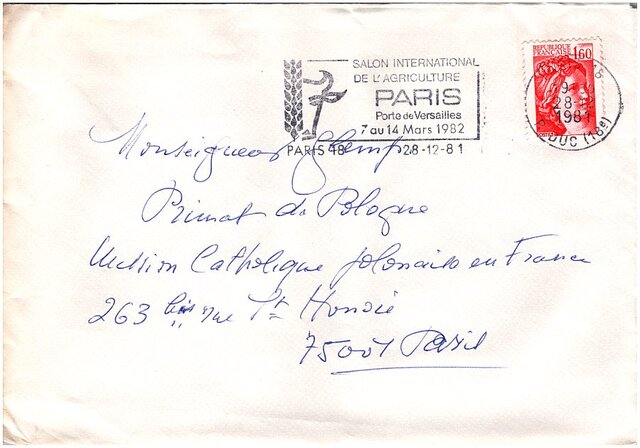 SALON INTERNATIONAL
DE L'AGRICULTURE
PARIS
Porte de Versailles
7 au 14 Mars 1982
PARIS 18 28-12-81
REPUBLIQUE
FRANÇAISE 1,60
9
28-12
1981
DUC (18e)
Monseigneur Glemp
Primat de Pologne
Mission Catholique polonaise en France
263 bis rue St Honoré
75001 Paris